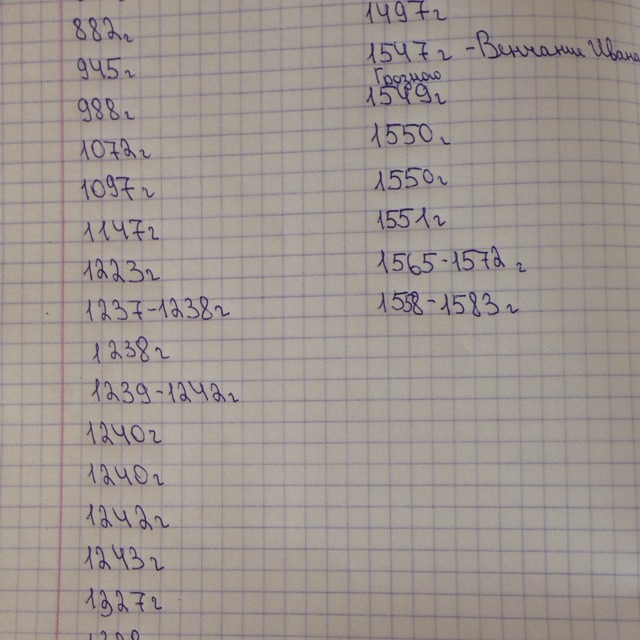 882г
945г
988г
1072г
1097г
1147г
1223г
1237-1238г
1238г
1239-1242г
1240г
1240г
1242г
1243г
1327г
1497г
1547г - Венчание Ивана
Грозного
1549г
1550г
1550г
1551г
1565-1572г
1558-1583г